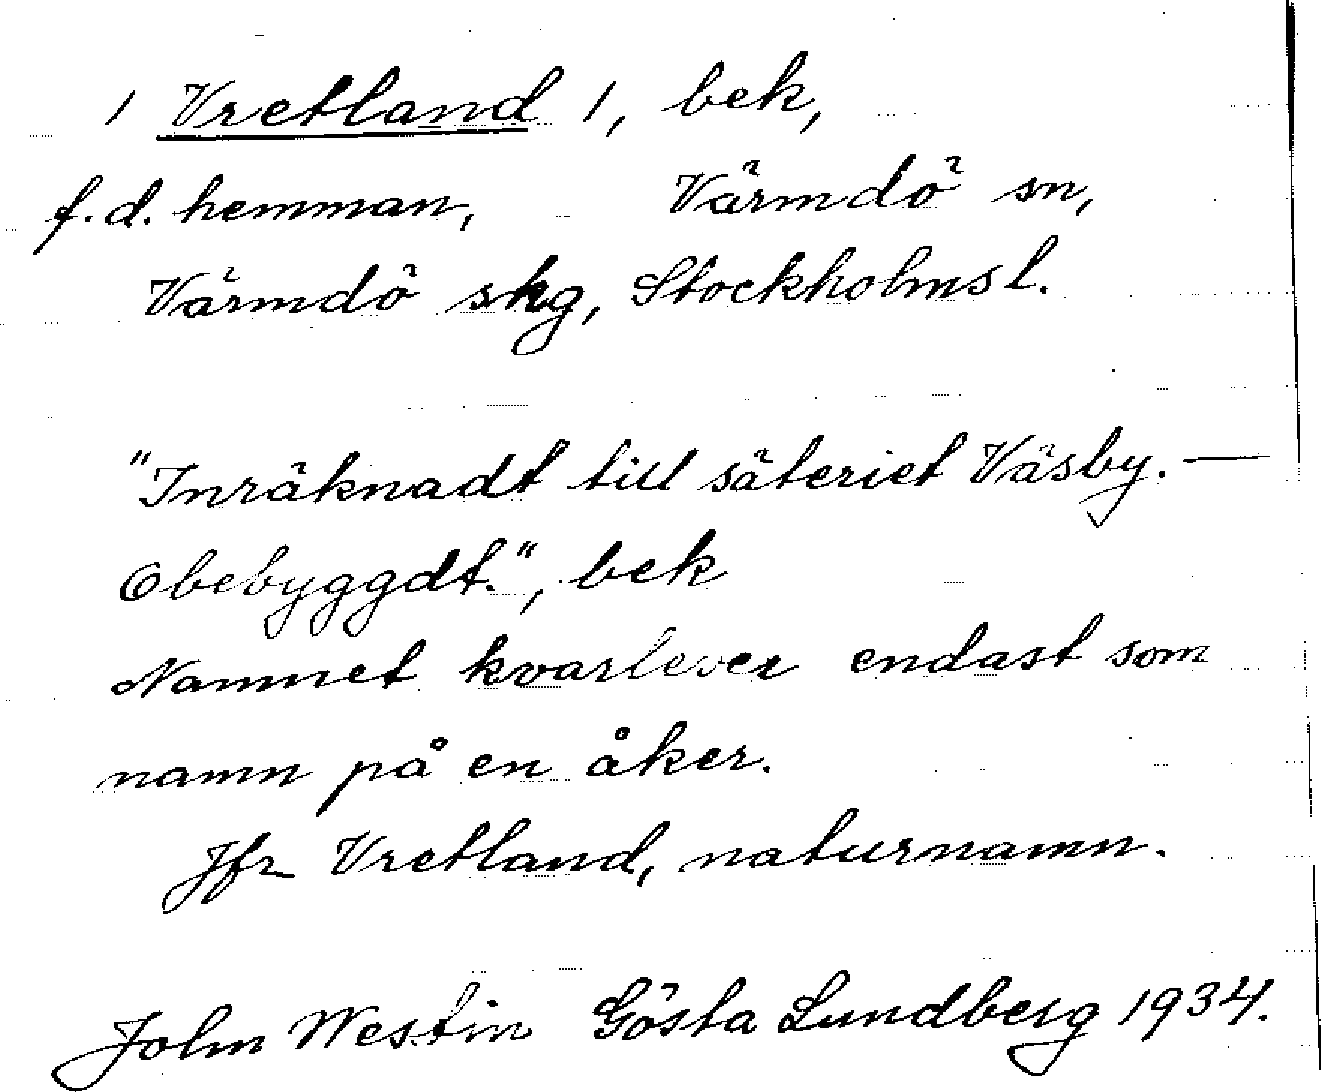 1 Vretland 1, bek,
f.d. hemman, Värmdö sn,
Värmdö skg, Stockholmsl.
"Inräknadt till säteriet Väsby. —
Obebyggdt.", bek
Namnet kvarlever endast som
namn på en åker.
Jfr Vretland, naturnamn.
John Westin Gösta Lundberg 1934.